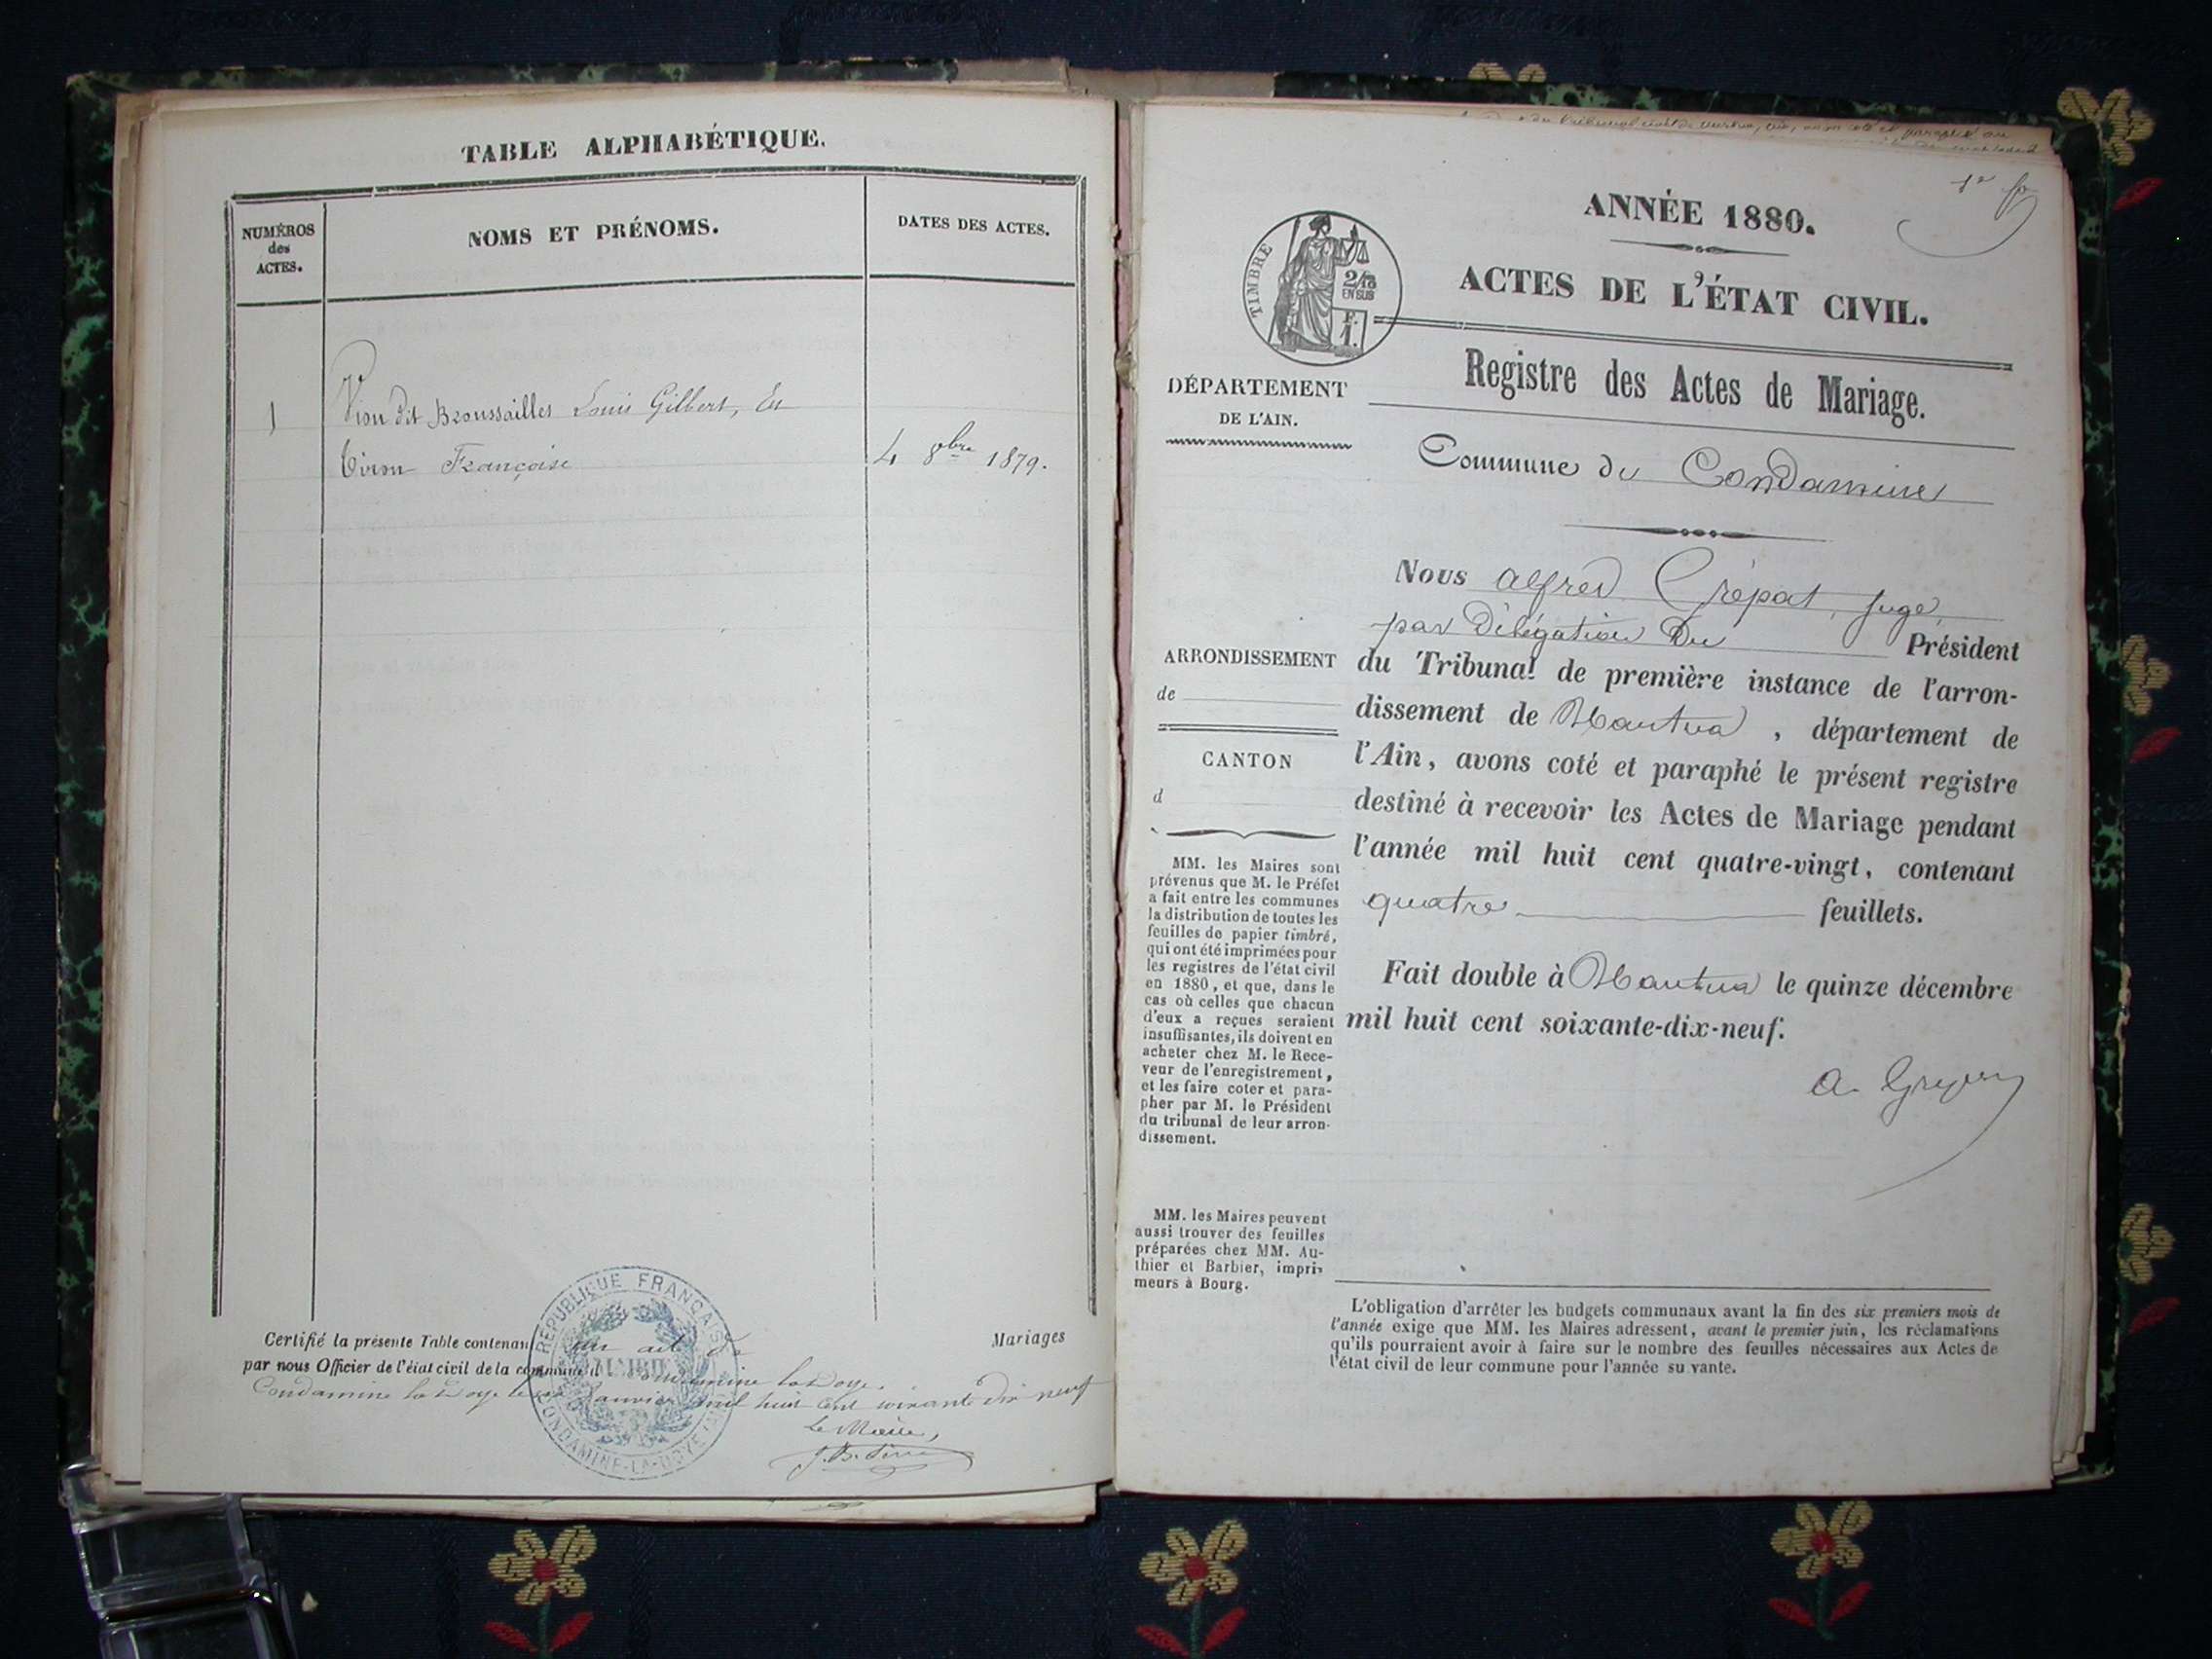 TABLE ALPHABÉTIQUE.
NUMÉROS
des
ACTES.
NOMS ET PRÉNOMS.
DATES DES ACTES.
1
Vion dit Broussailles Louis Gilbert, Et
Françoise
4 8bre 1879.
Certifié la présente Table contenan un acte de Mariages
par nous Officier de l'état civil de la commune d Condamine la Doye.
Condamine la Doye le janvier mil huit cent soixante dix neuf
Le Maire,
RÉPUBLIQUE FRANÇAISE
MAIRIE
CONDAMINE-LA-DOYE
1er
ANNÉE 1880.
ACTES DE L'ÉTAT CIVIL.
Registre des Actes de Mariage.
TIMBRE
2/10
EN SUS
F.
1.
DÉPARTEMENT
DE L'AIN.
Commune de Condamine
Nous Alfred juge,
par Délégation Du Président
du Tribunal de première instance de l'arron-
dissement de Nantua, département de
l'Ain, avons coté et paraphé le présent registre
destiné à recevoir les Actes de Mariage pendant
l'année mil huit cent quatre-vingt, contenant
quatre feuillets.
Fait double à Nantua le quinze décembre
mil huit cent soixante-dix-neuf.
ARRONDISSEMENT
de
CANTON
d
MM. les Maires sont
prévenus que M. le Préfet
a fait entre les communes
la distribution de toutes les
feuilles de papier timbré,
qui ont été imprimées pour
les registres de l'état civil
en 1880, et que, dans le
cas où celles que chacun
d'eux a reçues seraient
insuffisantes, ils doivent en
acheter chez M. le Rece-
veur de l'enregistrement,
et les faire coter et para-
pher par M. le Président
du tribunal de leur arron-
dissement.
MM. les Maires peuvent
aussi trouver des feuilles
préparées chez MM. Au-
thier et Barbier, impri-
meurs à Bourg.
L'obligation d'arrêter les budgets communaux avant la fin des six premiers mois de
l'année exige que MM. les Maires adressent, avant le premier juin, les réclamations
qu'ils pourraient avoir à faire sur le nombre des feuilles nécessaires aux Actes de
l'état civil de leur commune pour l'année su vante.